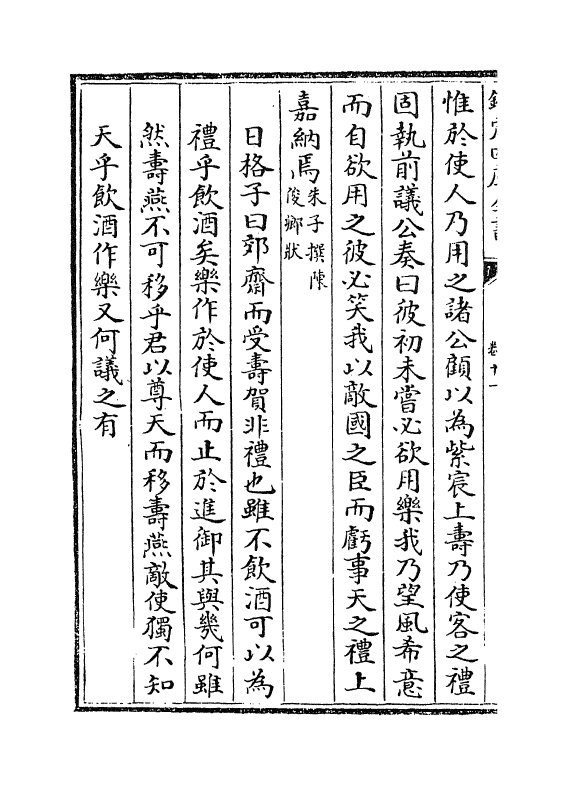 欽定四庫全書
卷十一
惟於使人乃用之諸公顧以為紫宸上壽乃使客之禮
固執前議公奏曰彼初未嘗必欲用樂我乃望風希意
而自欲用之彼必笑我以敵國之臣而虧事天之禮上
嘉納焉朱子撰陳
俊卿狀
日格子曰郊齋而受壽賀非禮也雖不飲酒可以為
禮乎飲酒矣樂作於使人而止於進御其與幾何雖
然壽燕不可移乎君以尊天而移壽燕敵使獨不知
天乎飲酒作樂又何議之有